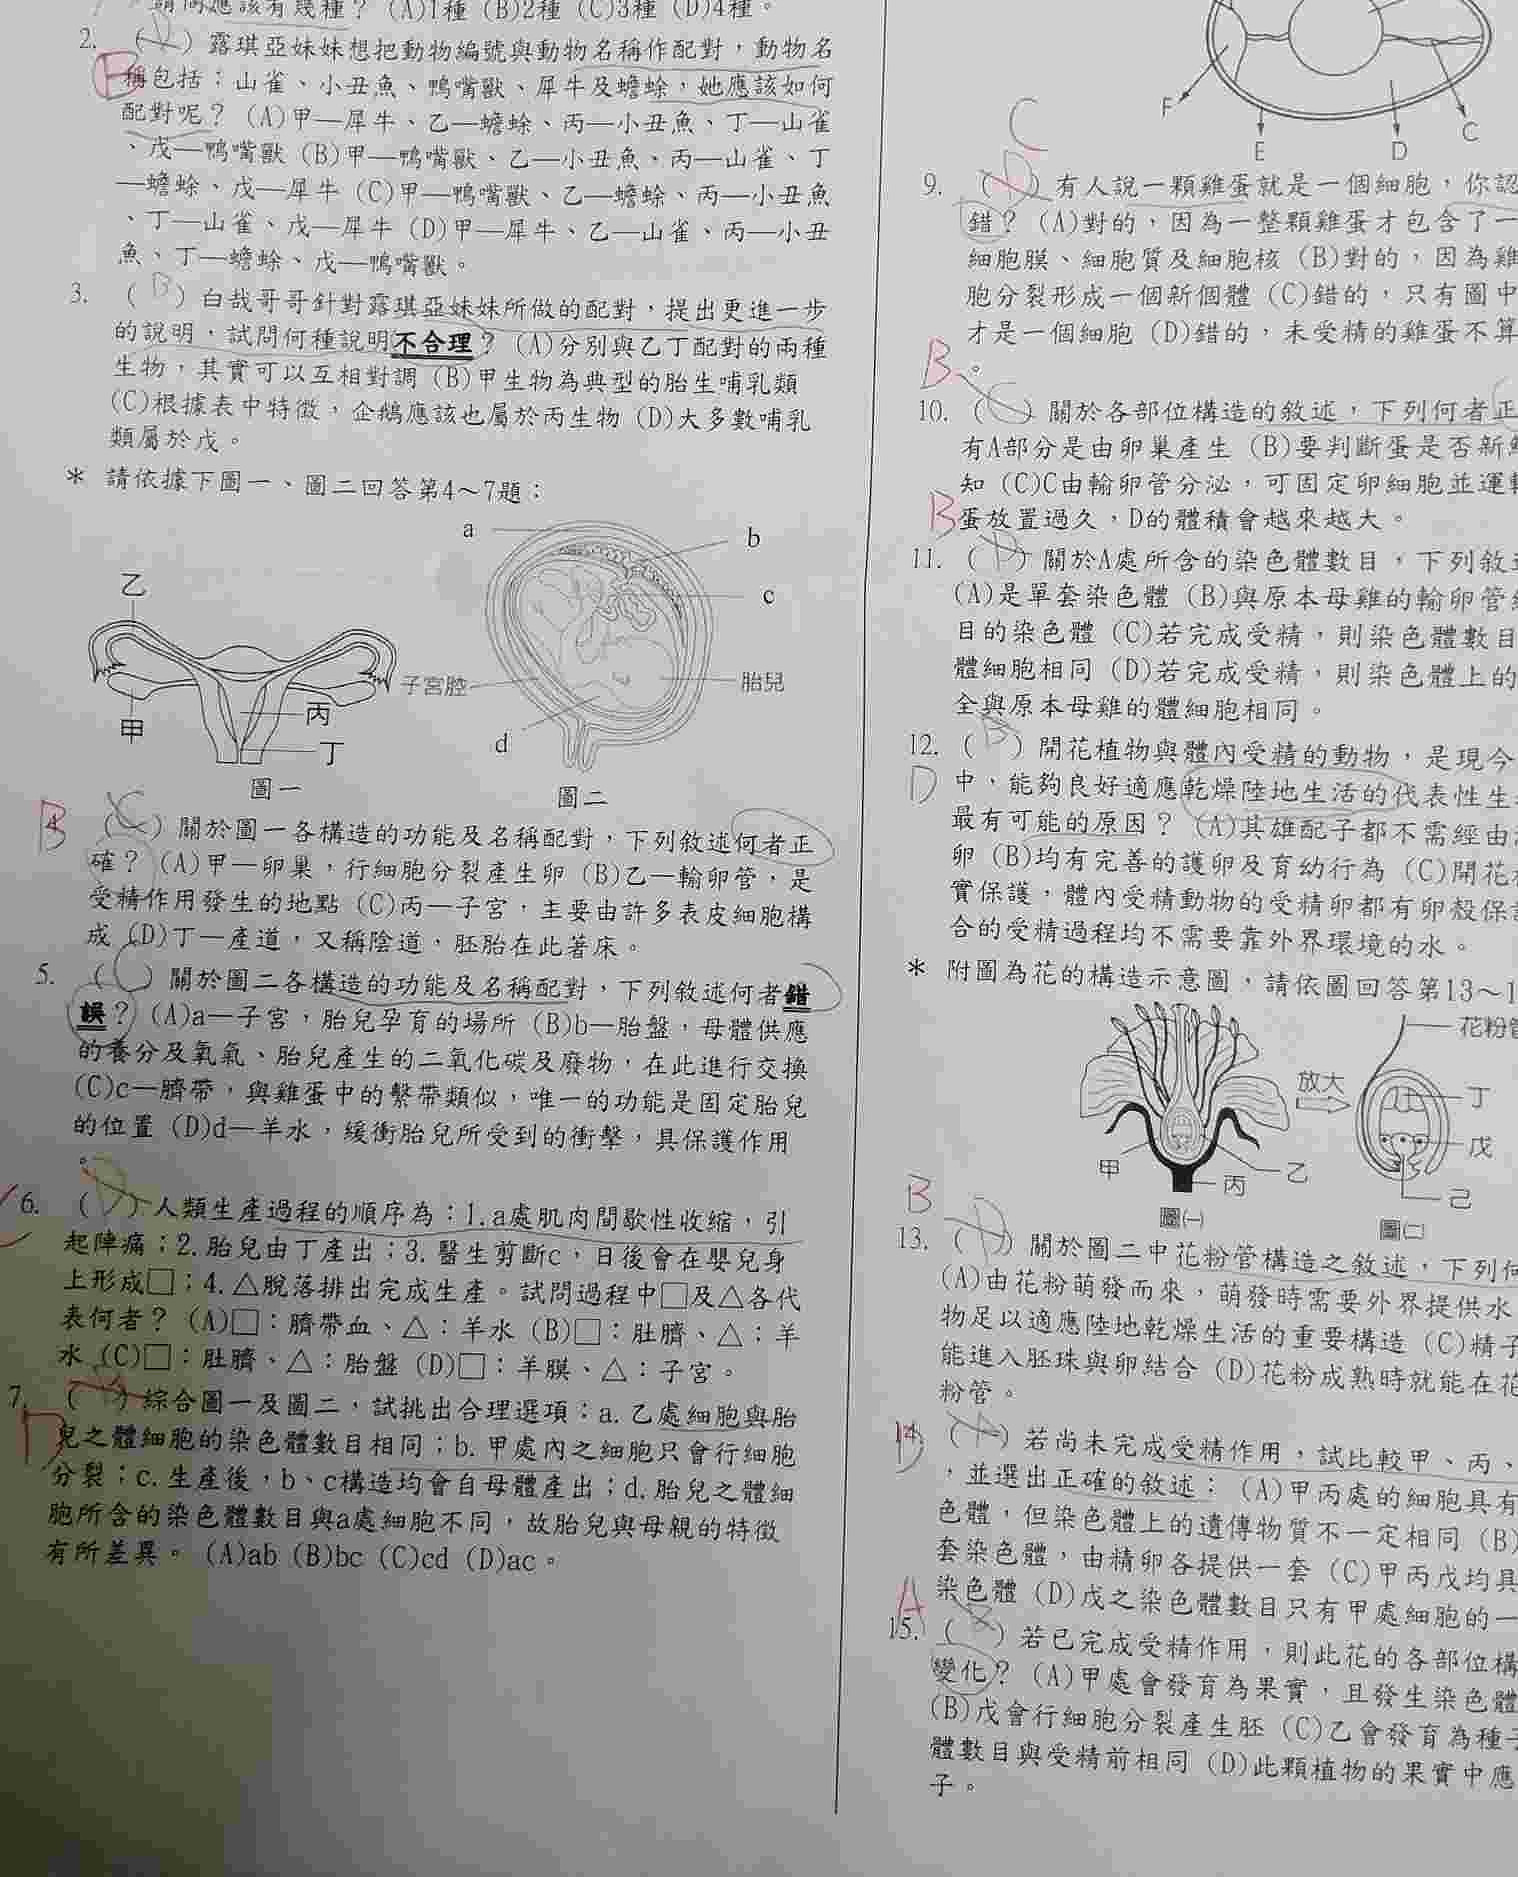 請問應該有幾種？ (A)1種 (B)2種 (C)3種 (D)4種。
2. ( D ) 露琪亞妹妹想把動物編號與動物名稱作配對，動物名
B
稱包括：山雀、小丑魚、鴨嘴獸、犀牛及蟾蜍，她應該如何
配對呢？ (A)甲—犀牛、乙—蟾蜍、丙—小丑魚、丁—山雀
、戊—鴨嘴獸 (B)甲—鴨嘴獸、乙—小丑魚、丙—山雀、丁
—蟾蜍、戊—犀牛 (C)甲—鴨嘴獸、乙—蟾蜍、丙—小丑魚
、丁—山雀、戊—犀牛 (D)甲—犀牛、乙—山雀、丙—小丑
魚、丁—蟾蜍、戊—鴨嘴獸。
3. ( B ) 白哉哥哥針對露琪亞妹妹所做的配對，提出更進一步
的說明，試問何種說明不合理？ (A)分別與乙丁配對的兩種
生物，其實可以互相對調 (B)甲生物為典型的胎生哺乳類
(C)根據表中特徵，企鵝應該也屬於丙生物 (D)大多數哺乳
類屬於戊。
* 請依據下圖一、圖二回答第4～7題：
a
b
c
乙
子宮腔
胎兒
甲
丙
丁
d
圖一
圖二
B
4. ( C ) 關於圖一各構造的功能及名稱配對，下列敘述何者正
確？ (A)甲—卵巢，行細胞分裂產生卵 (B)乙—輸卵管，是
受精作用發生的地點 (C)丙—子宮，主要由許多表皮細胞構
成 (D)丁—產道，又稱陰道，胚胎在此著床。
5. ( C ) 關於圖二各構造的功能及名稱配對，下列敘述何者錯
誤？ (A)a—子宮，胎兒孕育的場所 (B)b—胎盤，母體供應
的養分及氧氣、胎兒產生的二氧化碳及廢物，在此進行交換
(C)c—臍帶，與雞蛋中的繫帶類似，唯一的功能是固定胎兒
的位置 (D)d—羊水，緩衝胎兒所受到的衝擊，具保護作用
。
6. ( D ) 人類生產過程的順序為：1.a處肌肉間歇性收縮，引
起陣痛；2.胎兒由丁產出；3.醫生剪斷c，日後會在嬰兒身
上形成□；4.△脫落排出完成生產。試問過程中□及△各代
表何者？ (A)□：臍帶血、△：羊水 (B)□：肚臍、△：羊
水 (C)□：肚臍、△：胎盤 (D)□：羊膜、△：子宮。
7. ( ) 綜合圖一及圖二，試挑出合理選項：a.乙處細胞與胎
D
兒之體細胞的染色體數目相同；b.甲處內之細胞只會行細胞
分裂；c.生產後，b、c構造均會自母體產出；d.胎兒之體細
胞所含的染色體數目與a處細胞不同，故胎兒與母親的特徵
有所差異。 (A)ab (B)bc (C)cd (D)ac。
F
E
D
C
C
9. ( D ) 有人說一顆雞蛋就是一個細胞，你認
錯？ (A)對的，因為一整顆雞蛋才包含了一
細胞膜、細胞質及細胞核 (B)對的，因為雞
胞分裂形成一個新個體 (C)錯的，只有圖中
才是一個細胞 (D)錯的，未受精的雞蛋不算
。
B
10. ( C ) 關於各部位構造的敘述，下列何者正
有A部分是由卵巢產生 (B)要判斷蛋是否新
知 (C)C由輸卵管分泌，可固定卵細胞並運
蛋放置過久，D的體積會越來越大。
B
11. ( D ) 關於A處所含的染色體數目，下列敘
(A)是單套染色體 (B)與原本母雞的輸卵管
目的染色體 (C)若完成受精，則染色體數目
體細胞相同 (D)若完成受精，則染色體上的
全與原本母雞的體細胞相同。
12. ( B ) 開花植物與體內受精的動物，是現今
D
中，能夠良好適應乾燥陸地生活的代表性生
最有可能的原因？ (A)其雄配子都不需經由
卵 (B)均有完善的護卵及育幼行為 (C)開花
實保護，體內受精動物的受精卵都有卵殼保
合的受精過程均不需要靠外界環境的水。
* 附圖為花的構造示意圖，請依圖回答第13～1
花粉管
放大
丁
戊
甲
乙
丙
己
圖(一)
圖(二)
B
13. ( D ) 關於圖二中花粉管構造之敘述，下列何
(A)由花粉萌發而來，萌發時需要外界提供水
物足以適應陸地乾燥生活的重要構造 (C)精子
能進入胚珠與卵結合 (D)花粉成熟時就能在花
粉管。
D
14. ( A ) 若尚未完成受精作用，試比較甲、丙、
，並選出正確的敘述： (A)甲丙處的細胞具有
色體，但染色體上的遺傳物質不一定相同 (B)
套染色體，由精卵各提供一套 (C)甲丙戊均具
染色體 (D)戊之染色體數目只有甲處細胞的一
A
15. ( ) 若已完成受精作用，則此花的各部位構
變化？ (A)甲處會發育為果實，且發生染色體
(B)戊會行細胞分裂產生胚 (C)乙會發育為種子
體數目與受精前相同 (D)此顆植物的果實中應
子。